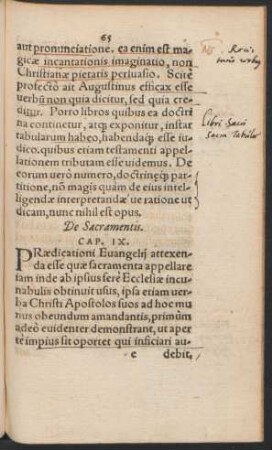 65
aut pronunciatione. ea enim est ma-
gicæ incantationis imaginatio, non
Christianæ pietatis persuasio. Scitè
profectò ait Augustinus efficax esse
verbũ non quia dicitur, sed quia cre-
ditur. Porto libros quibus ea doctri
na continetur, atq; exponitur, instar
tabularum habeo, habendaq́; esse iu-
dico. quibus etiam testamenti appel-
lationem tributam esse uidemus. De
eorum verò numero, doctrinęq; par-
titione, nõ magis quàm de eius intel-
ligendæ interpretandæ´ue ratione ut
dicam, nunc nihil est opus.
Libri Sacri
sacræ tabulæ
De Sacramentis.
CAP. IX.
PRædicationi Euangelij attexen-
da esse quæ sacramenta appellare
iam inde ab ipsius ferè Ecclesiæ incu-
nabulis obtinuit usus, ipsa etiam ver-
ba Christi Apostolos suos ad hoc mu
nus obeundum amandantis, primùm
adeò euidenter demonstrant, ut aper
tè impius sit oportet qui inficiari au-
e debit,